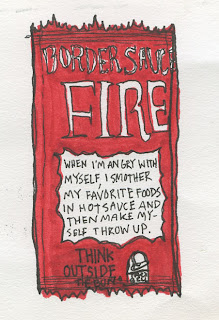 BORDER SAUCE
FIRE
WHEN I'M ANGRY WITH
MYSELF, I SMOTHER
MY FAVORITE FOODS
IN HOT SAUCE AND
THEN MAKE MY-
SELF THROW UP.
THINK
OUTSIDE
THE BUN